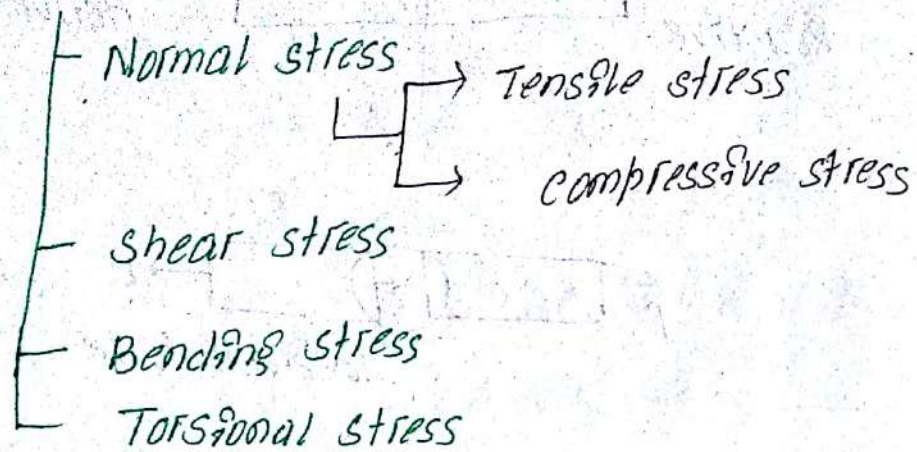 Normal stress
Tensile stress
compressive stress
Shear stress
Bending stress
Torsional stress